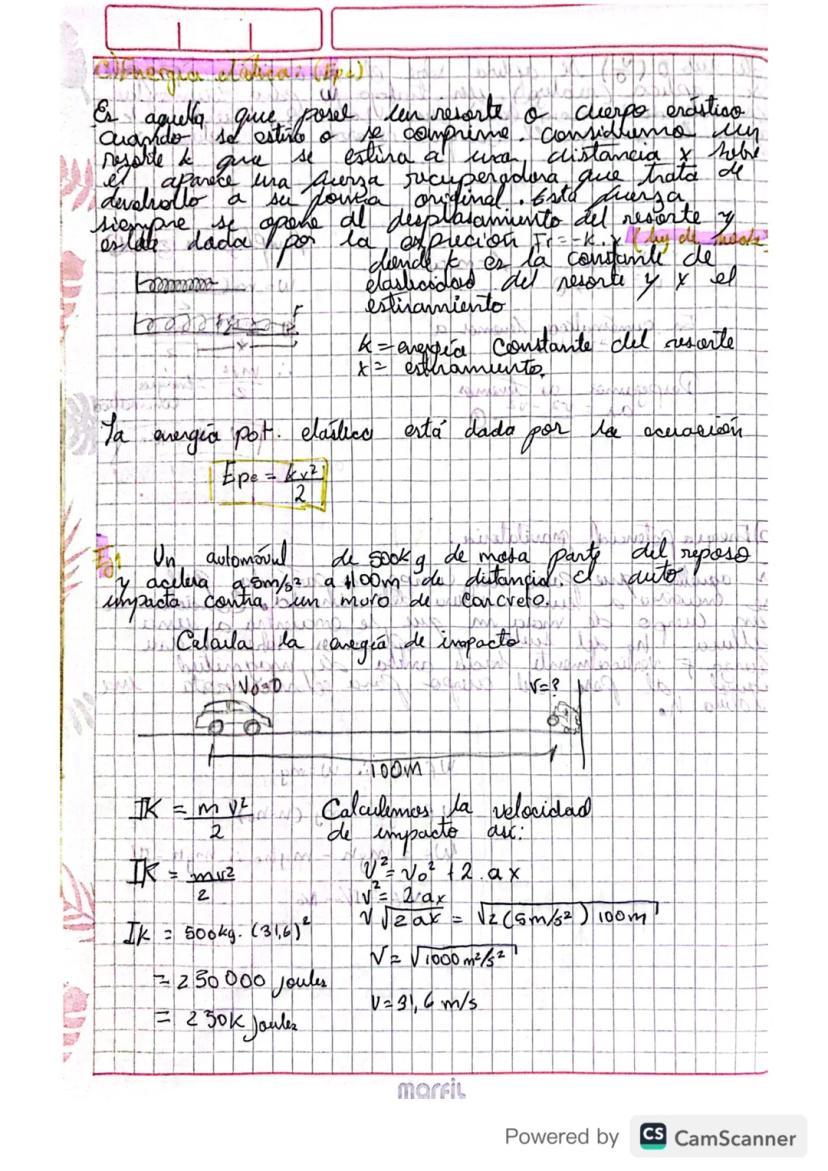 C) Energía elástica: (Epe)
Es aquella que posee un resorte o cuerpo elástico
cuando se estira o se comprime. consideremo un
resorte k que se estira a una distancia x sobre
él aparece una fuerza recuperadora que trata de
devolverlo a su forma original. Esta fuerza
siempre se opone al desplasamiento del resorte y
estác dada por la expreción Fr = -k.x (ley de hooke)
donde k es la constante de
elasticidad del resorte y x el
estiramiento
F
x
k = energía Constante del resorte
x = estiramiento.
La energía pot. elástica está dada por la ecuación
Epe = kv²/2
Ej: Un automóvil de 500kg de masa parte del reposo
y acelera a 5m/s² a 100m de distancia el auto
impacta contra un muro de concreto.
Calcula la energía de impacto
V₀=0 V=?
100m
IK = m v²/2 Calculemos la velocidad
de impacto así:
IK = mv²/2 V² = V₀² + 2.ax
V² = 2ax
IK = 500kg. (31,6)² V √2ax = √2(5m/s²)100m
V = √1000m²/s²
= 250000 joules
V = 31,6 m/s
= 250K joules
marfil
Powered by CS CamScanner